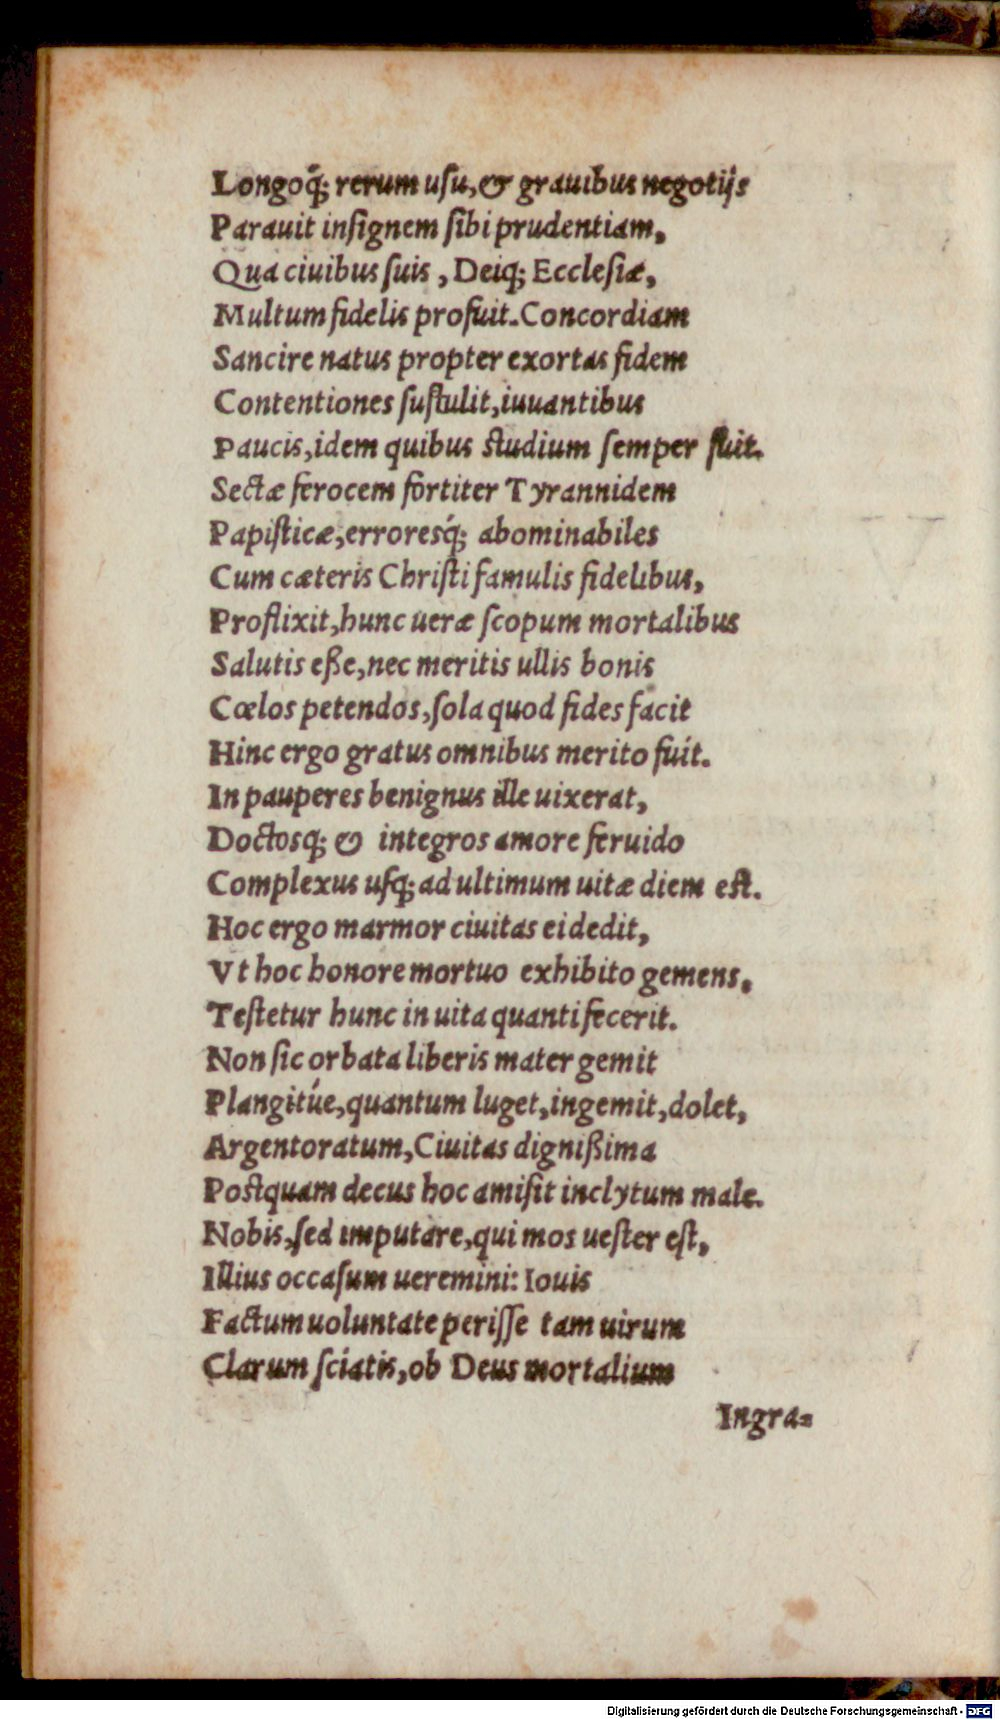 Longoq́; rerum uſu, & grauibus negotijs
Parauit inſignem ſibi prudentiam,
Qua ciuibus ſuis, Deiq; Eccleſiæ,
Multum fidelis profuit. Concordiam
Sancire natus propter exortas fidem
Contentiones ſuſtulit, iuuantibus
Paucis, idem quibus ſtudium ſemper fuit.
Sectæ ferocem fortiter Tyrannidem
Papiſticæ, erroresq́; abominabiles
Cum cæteris Chriſti famulis fidelibus,
Proflixit, hunc ueræ ſcopum mortalibus
Salutis eße, nec meritis ullis bonis
Cœlos petendos, ſola quod fides facit
Hinc ergo gratus omnibus merito fuit.
In pauperes benignus ille uixerat,
Doctosq; & integros amore feruido
Complexus uſq; ad ultimum uitæ diem eſt.
Hoc ergo marmor ciuitas ei dedit,
Vt hoc honore mortuo exhibito gemens,
Teſtetur hunc in uita quanti fecerit.
Non ſic orbata liberis mater gemit
Plangitúe, quantum luget, ingemit, dolet,
Argentoratum, Ciuitas dignißima
Poſtquam decus hoc amiſit inclytum male.
Nobis, ſed imputare, qui mos ueſter eſt,
Illius occaſum ueremini: Iouis
Factum uoluntate periſſe tam uirum
Clarum ſciatis, ob Deus mortalium
Ingra-
Digitalisierung gefördert durch die Deutsche Forschungsgemeinschaft - DFG